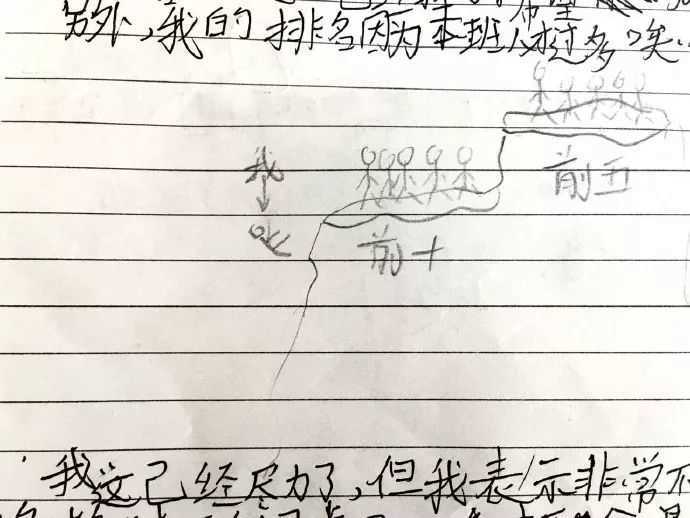 希望
另外,我的排名因为本班人才过多唉..
前五
我
前十
我这已经尽力了,但我表示非常不